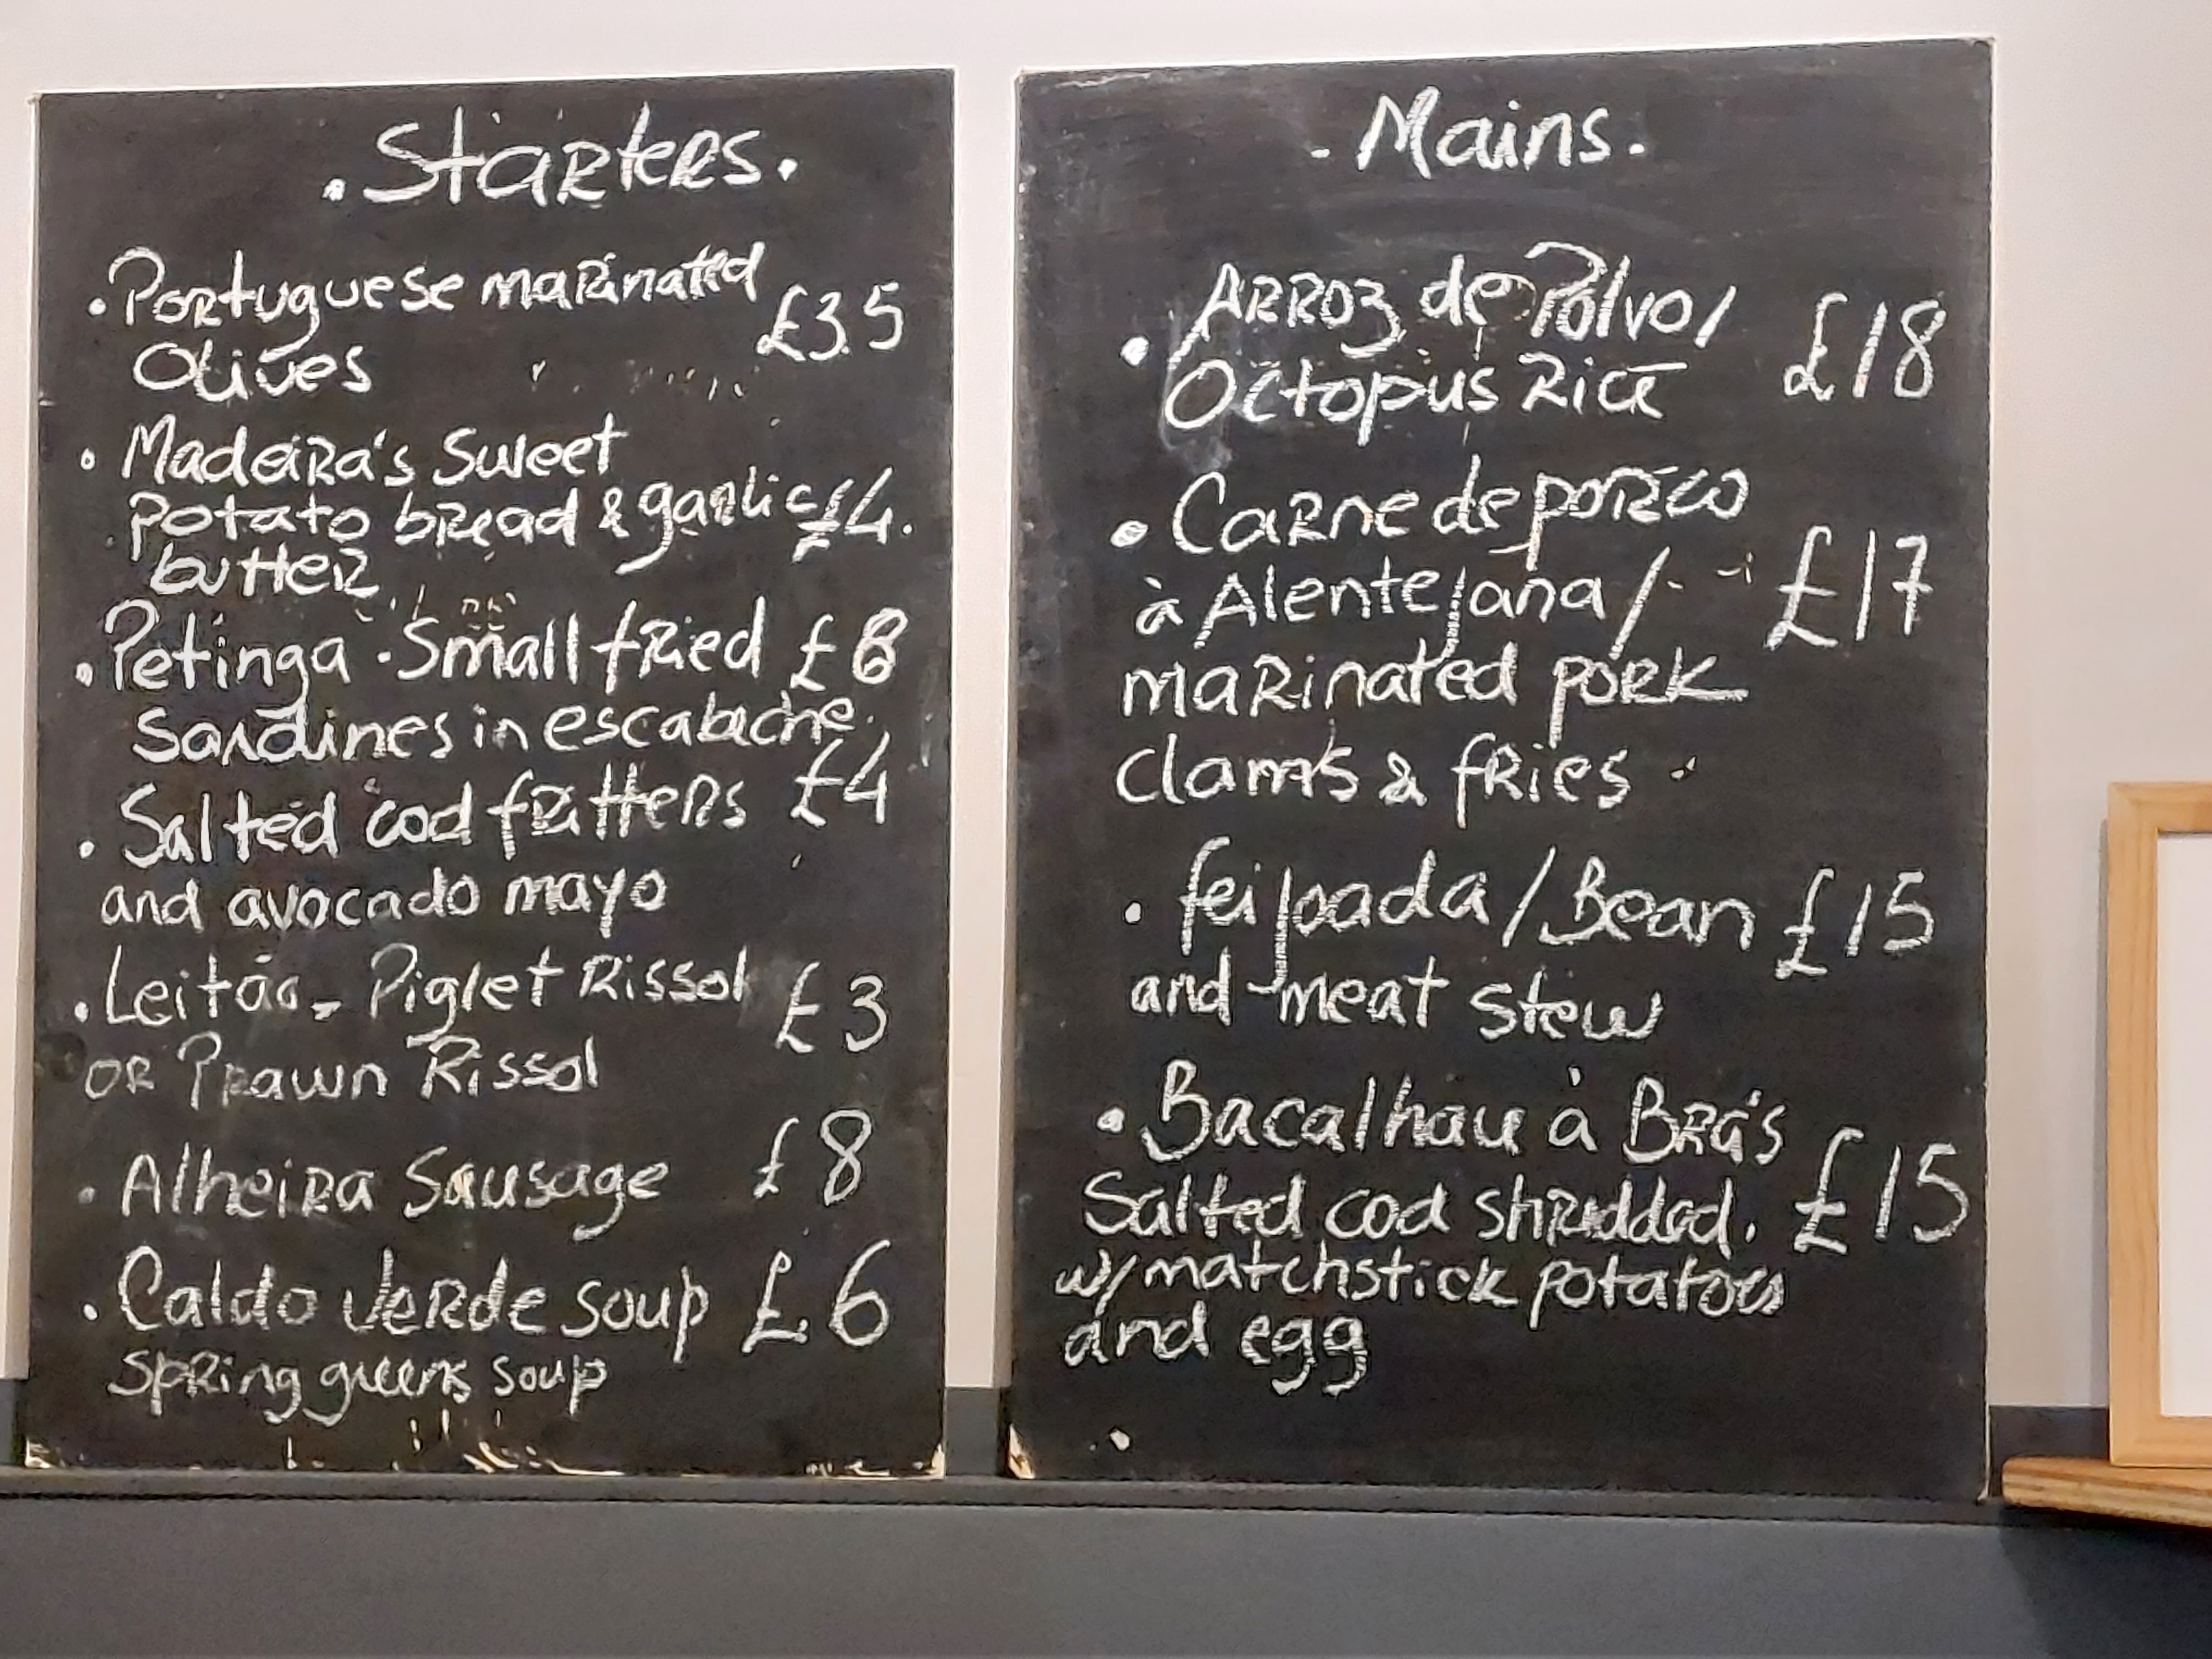 . Starters .
. Portuguese marinated
Olives £3.5
. Madeira's Sweet
Potato bread & garlic £4.
butter
. Petinga - Small fried £8
Sardines in escabeche
. Salted cod fritters £4
and avocado mayo
. Leitão - Piglet Rissol £3
or Prawn Rissol
. Alheira Sausage £8
. Caldo Verde soup £6
Spring greens soup
- Mains -
. Arroz de Polvo/ £18
Octopus Rice
. Carne de porco
à Alentejana/ £17
marinated pork
clams & fries
. feijoada/Bean £15
and meat stew
. Bacalhau à Brás
Salted cod shredded. £15
w/matchstick potatoes
and egg